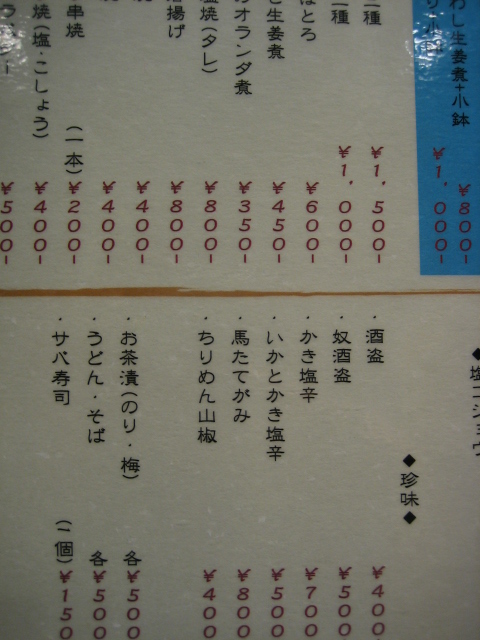 わし生姜煮+小鉢 ¥800-
¥1,000-
二種 ¥1,500-
二種 ¥1,000-
はとろ ¥600-
生姜煮 ¥450-
オランダ煮 ¥350-
塩焼(タレ) ¥800-
揚げ ¥800-
¥400-
¥400-
串焼 (一本) ¥200-
焼(塩・こしょう) ¥400-
¥500-
◆塩コショウ
◆珍味◆
・酒盗 ¥400
・奴酒盗 ¥500
・かき塩辛 ¥700
・いかとかき塩辛 ¥500
・馬たてがみ ¥800
・ちりめん山椒 ¥400
・お茶漬(のり・梅) 各¥500
・うどん・そば 各¥500
・サバ寿司 (一個)¥150